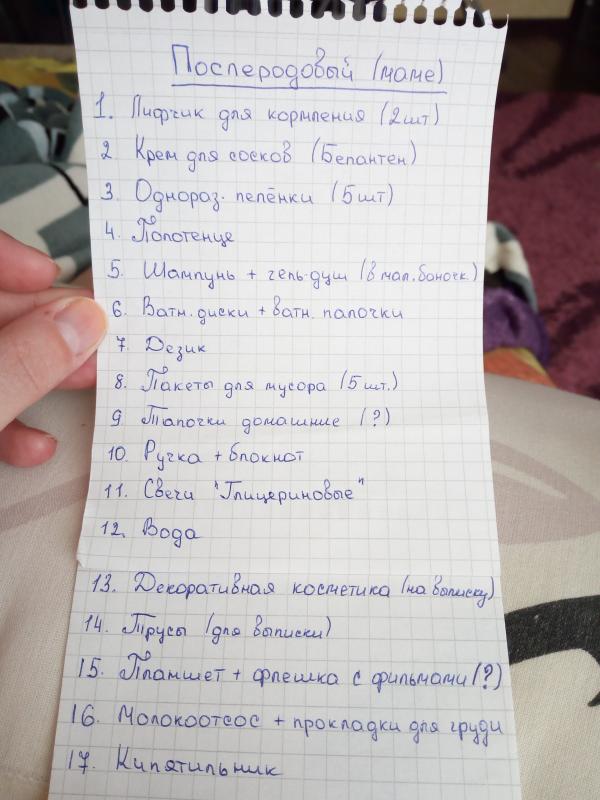 Послеродовый (маме)
1. Лифчик для кормления (2шт)
2 Крем для сосков (Бепантен)
3. Однораз. пелёнки (5шт)
4. Полотенце
5. Шампунь + гель-душ (в мал. баночк.)
6. Ватн. диски + ватн. палочки
7. Дезик
8. Пакеты для мусора (5шт.)
9. Тапочки домашние (?)
10. Ручка + блокнот
11. Свечи "Глицериновые"
12. Вода
13. Декоративная косметика (на выписку)
14. Трусы (для выписки)
15. Планшет + флешка с фильмами (?)
16. Молокоотсос + прокладки для груди
17. Кипятильник